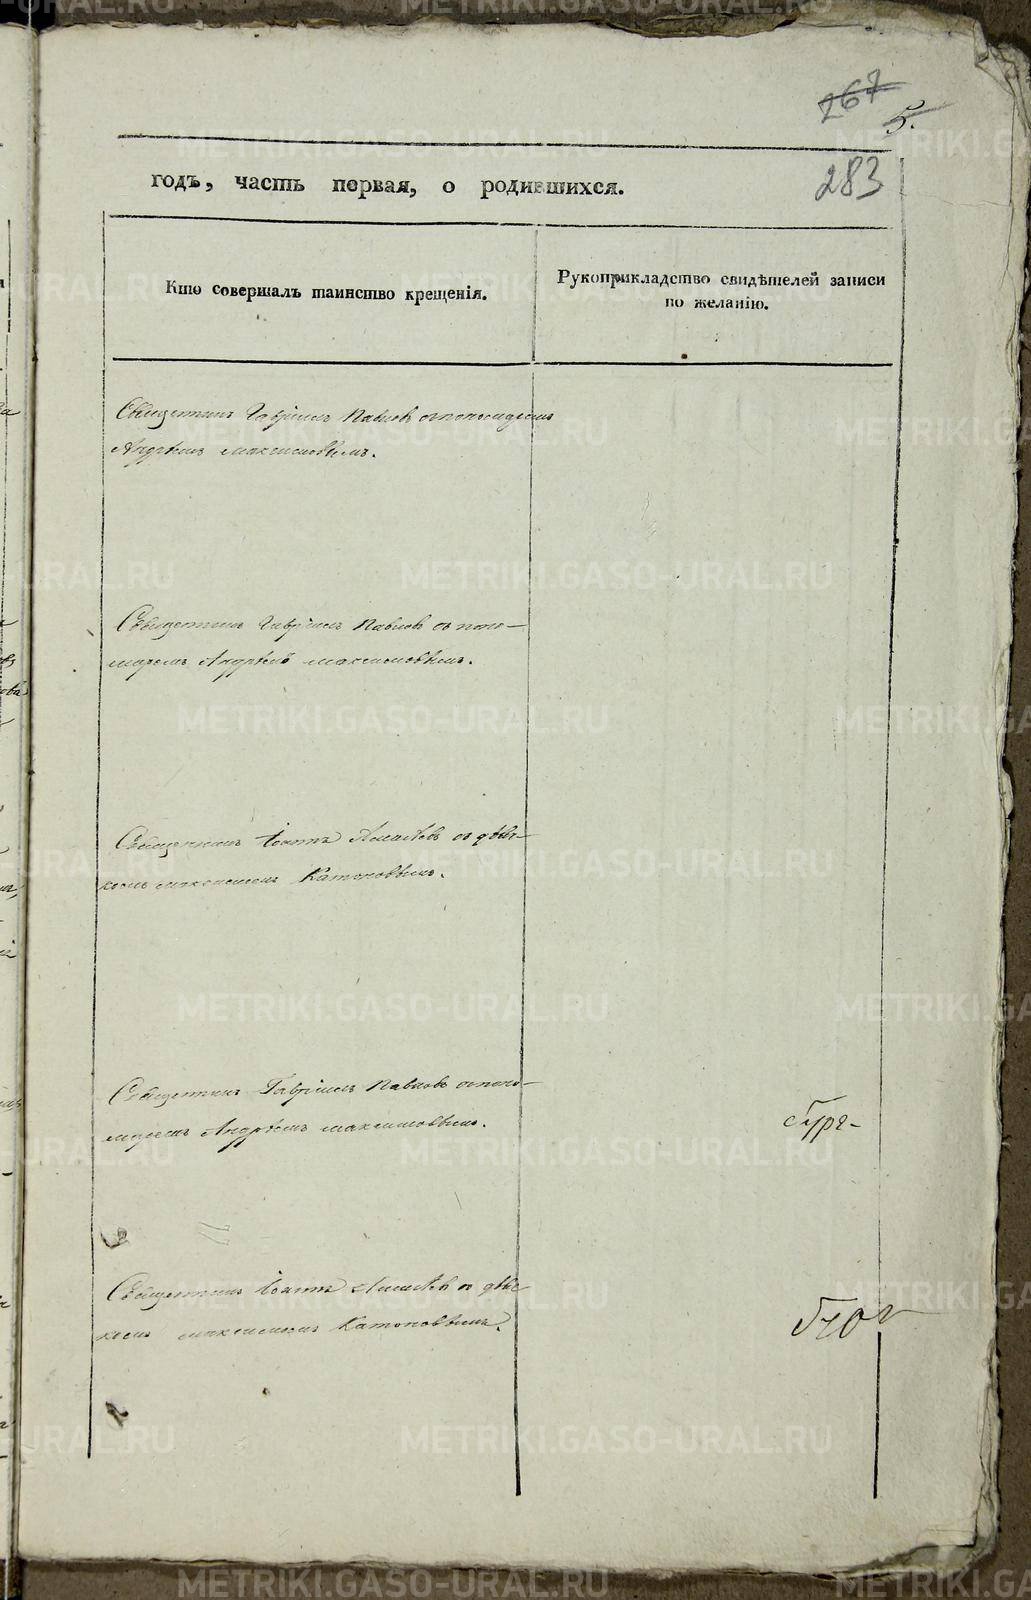 267
5.
283
годъ, часть первая, о родившихся.
Кто совершалъ таинство крещенія.
Рукоприкладство свидѣтелей записи
по желанію.
Священникъ Гавріилъ Павловъ съ пономаремъ
Андрѣемъ Максимовымъ.
Священникъ Гавріилъ Павловъ съ поно-
маремъ Андрѣемъ Максимовымъ.
Священникъ Іоаннъ съ дья-
комъ Максимомъ
Священникъ Гавріилъ Павловъ съ поно-
маремъ Андрѣемъ Максимовымъ.
Священникъ Іоаннъ съ
комъ Максимомъ
METRIKI.GASO-URAL.RU